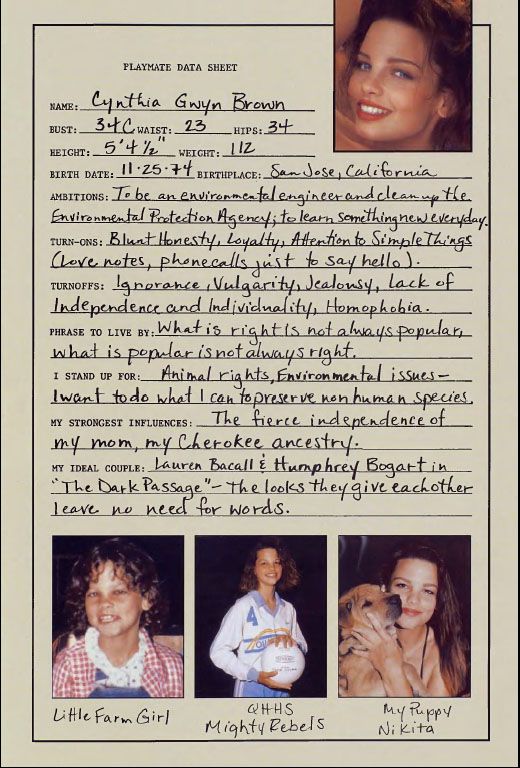 PLAYMATE DATA SHEET
NAME: Cynthia Gwyn Brown
BUST: 34C WAIST: 23 HIPS: 34
HEIGHT: 5'4½" WEIGHT: 112
BIRTH DATE: 11·25·74 BIRTHPLACE: San Jose, California
AMBITIONS: To be an environmental engineer and clean up the
Environmental Protection Agency; to learn something new everyday.
TURN-ONS: Blunt Honesty, Loyalty, Attention to Simple Things
(Love notes, phone calls just to say hello).
TURNOFFS: Ignorance, Vulgarity, Jealousy, Lack of
Independence and Individuality, Homophobia.
PHRASE TO LIVE BY: What is right is not always popular,
what is popular is not always right.
I STAND UP FOR: Animal rights, Environmental issues—
I want to do what I can to preserve non human species.
MY STRONGEST INFLUENCES: The fierce independence of
my mom, my Cherokee ancestry.
MY IDEAL COUPLE: Lauren Bacall & Humphrey Bogart in
"The Dark Passage"- The looks they give each other
leave no need for words.
Little Farm Girl
QHHS
Mighty Rebels
My Puppy
Nikita